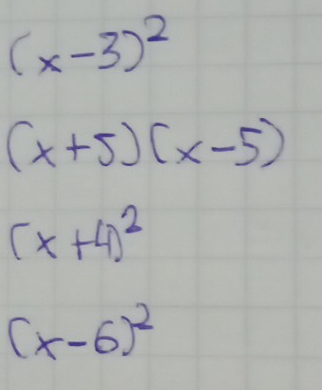 (x-3)²
(x+5)(x-5)
(x+4)²
(x-6)²